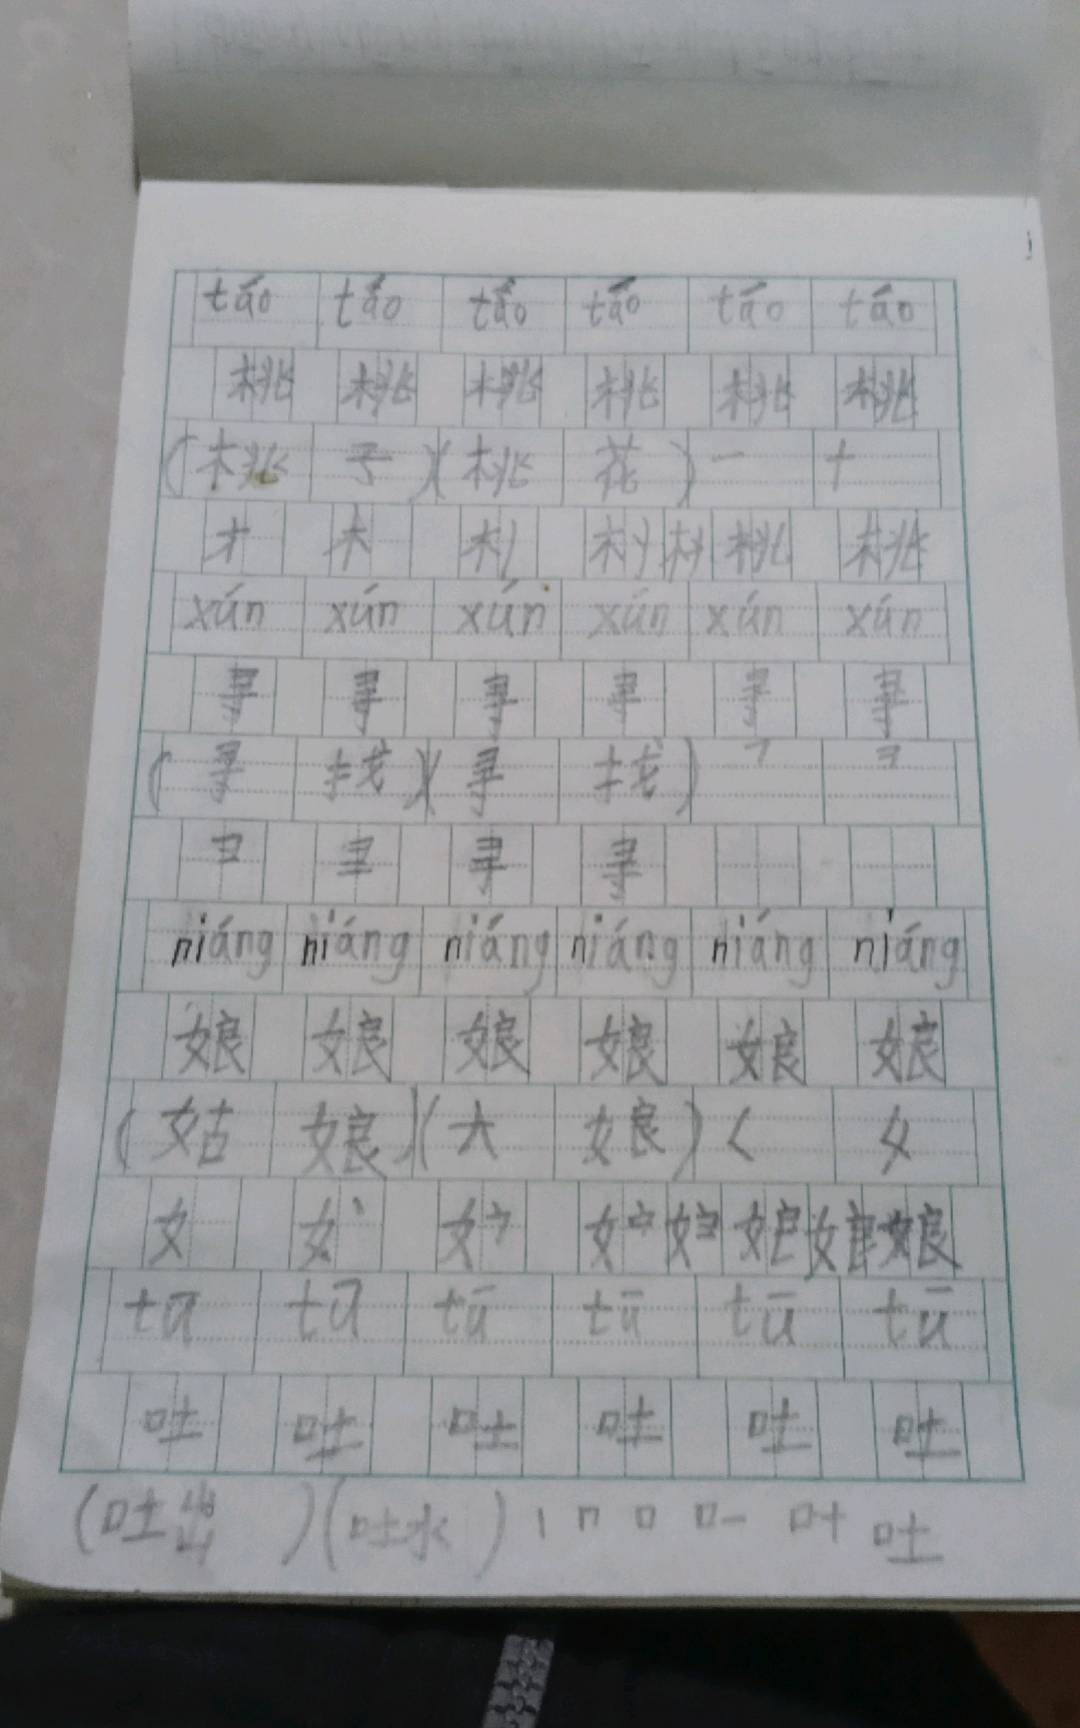 táo táo táo táo táo táo
桃 桃 桃 桃 桃 桃
(桃 子)(桃 花) 一 十
才 木 桃 桃
xún xún xún xún xún xún
寻 寻 寻 寻 寻 寻
(寻 找)(寻 找) ㇕ ⺕
彐 寻 寻
niáng niáng niáng niáng niáng niáng
娘 娘 娘 娘 娘 娘
(姑 娘)(大 娘) く 女
女 女丶 娘 娘
tū tū tū tū tū tū
吐 吐 吐 吐 吐 吐
(吐出)(吐水) 丨 冂 口 口一 叶 吐